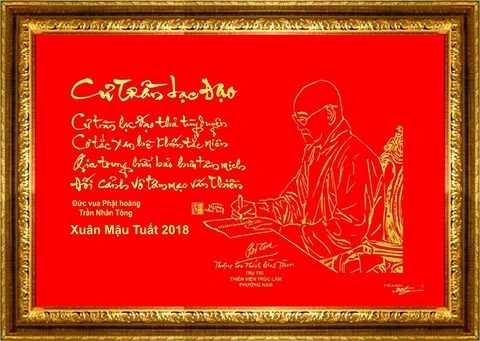 Cư trần lạc Đạo
Cư trần lạc Đạo thả tùy duyên
Cơ tắc xan hề khốn tắc miên
Gia trung hữu bảo hưu tầm mịch
Đối cảnh vô tâm mạc vấn thiền
Đức vua Phật hoàng
Trần Nhân Tông
Xuân Mậu Tuất 2018
Thượng tọa Thích Bình Tâm
TRỤ TRÌ
THIỀN VIỆN TRÚC LÂM
PHƯƠNG NAM
TRANH